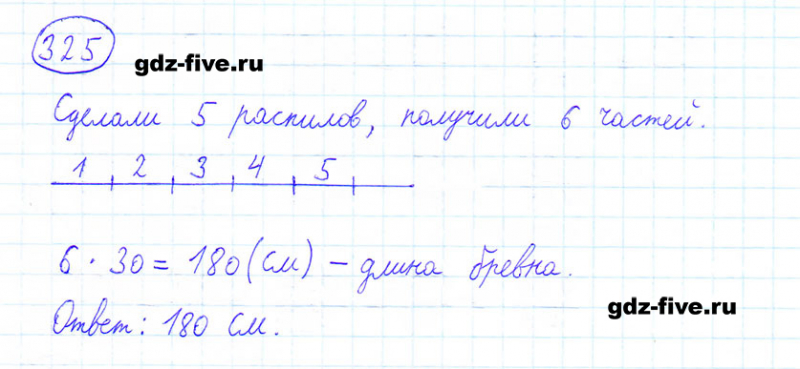 325
gdz-five.ru
Сделали 5 распилов, получили 6 частей.
1 2 3 4 5
6 · 30 = 180 (см) - длина бревна.
gdz-five.ru
Ответ: 180 см.